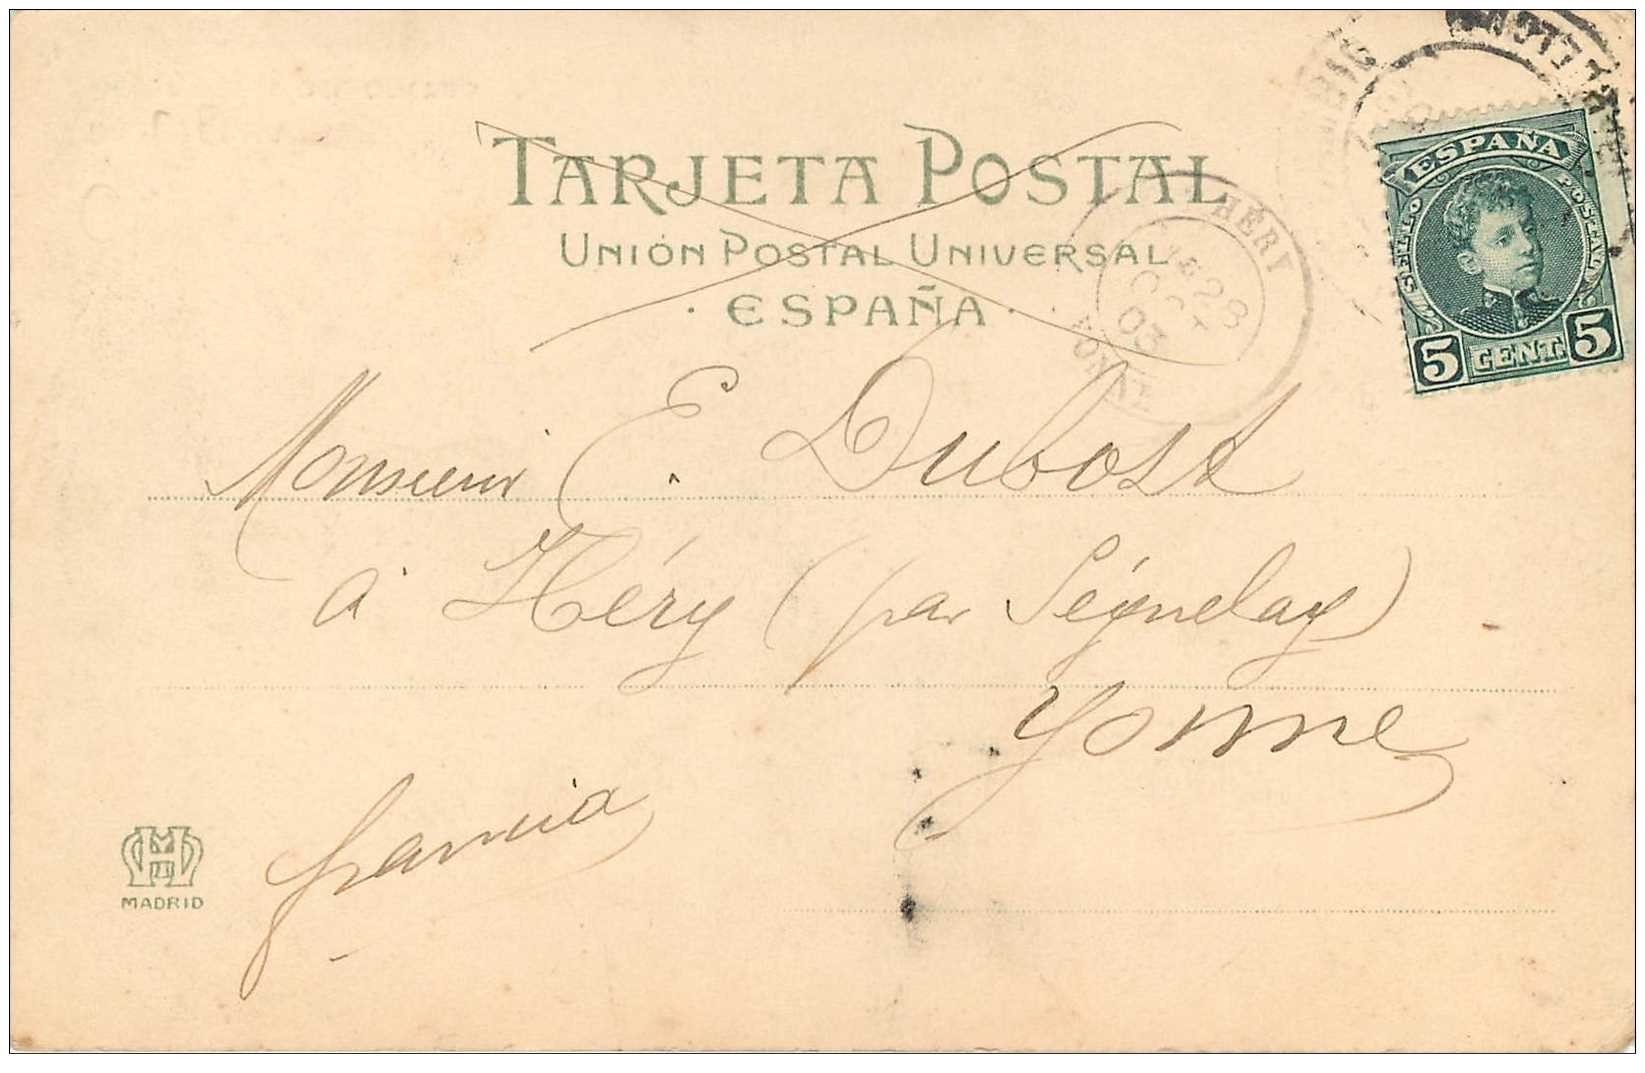 TARJETA POSTAL
UNIÓN POSTAL UNIVERSAL
· ESPAÑA ·
ESPAÑA
SELLO POSTAL
5 CENT. 5
HÉRY
28
OCT
03
YONNE
Monsieur E. Dubost
à Héry (par Ségnelay)
Yonne
francia
MADRID